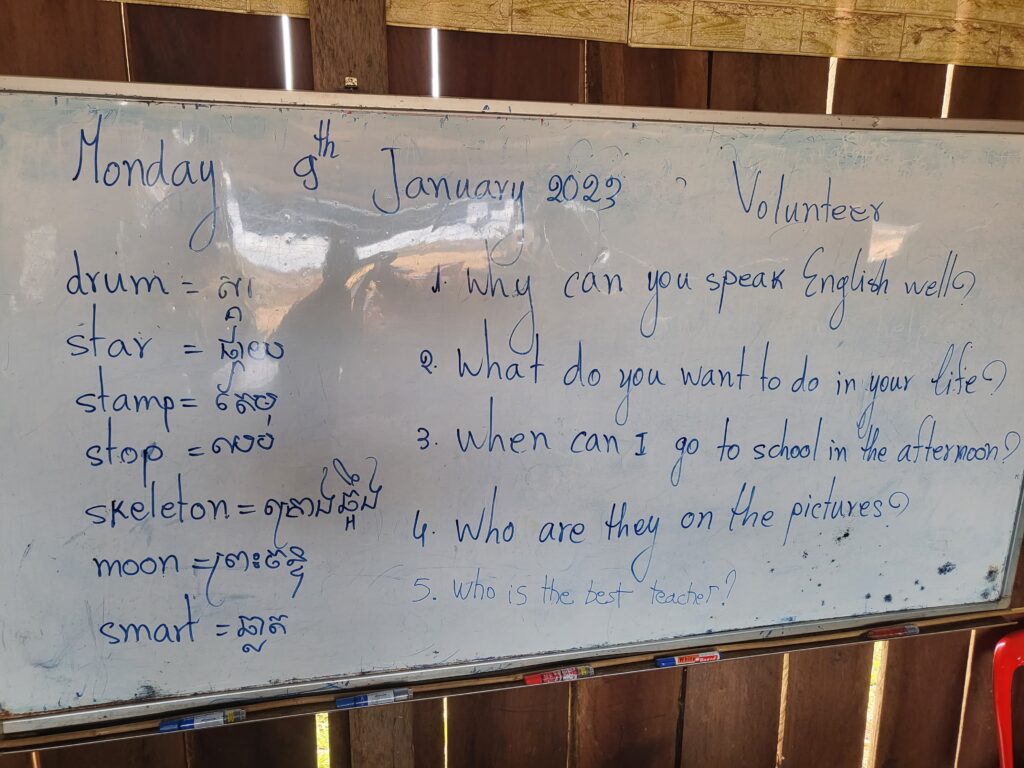 Monday 9th January 2023 Volunteer
drum = ស្គរ
star = ផ្កាយ
stamp = តែម
stop = ឈប់
skeleton = គ្រោងឆ្អឹង
moon = ព្រះច័ន្ទ
smart = ឆ្លាត
1. Why can you speak English well?
2. What do you want to do in your life?
3. When can I go to school in the afternoon?
4. Who are they on the pictures?
5. Who is the best teacher?